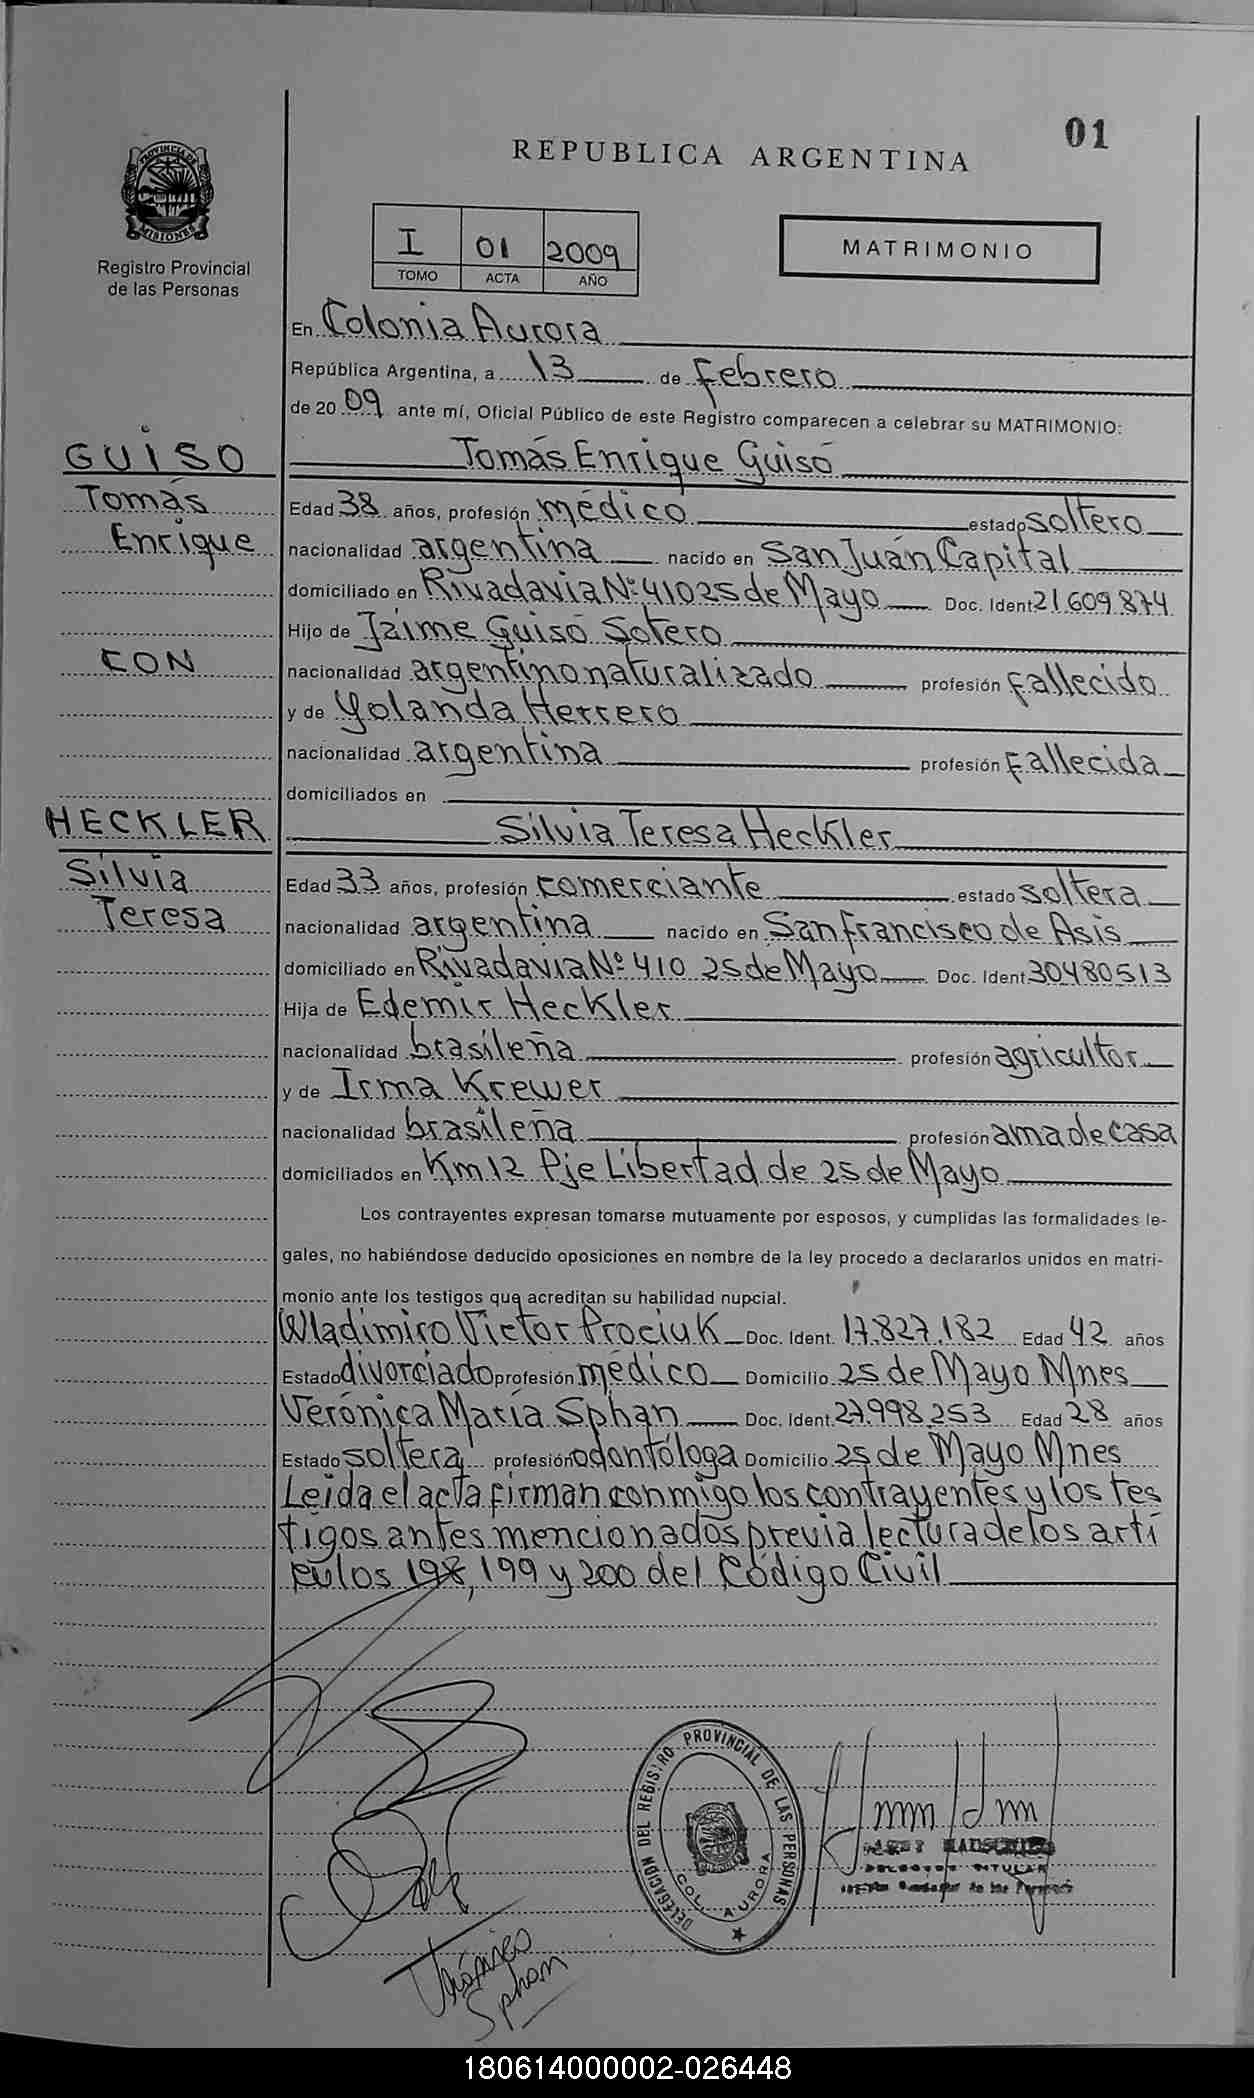 01
REPUBLICA ARGENTINA
PROVINCIA DE
MISIONES
Registro Provincial
de las Personas
I 01 2009
TOMO ACTA AÑO
MATRIMONIO
En Colonia Aurora
República Argentina, a 13 de febrero
de 20 09 ante mí, Oficial Público de este Registro comparecen a celebrar su MATRIMONIO:
GUISO
Tomás Enrique Guisó
Tomás
Edad 38 años, profesión médico estado soltero
Enrique
nacionalidad argentina nacido en San Juán Capital
domiciliado en Rivadavia Nº 410 25 de Mayo Doc. Ident 21.609.874
Hijo de Jaime Guisó Sotero
CON
nacionalidad argentino naturalizado profesión fallecido
y de Yolanda Herrero
nacionalidad argentina profesión fallecida
domiciliados en
HECKLER
Silvia Teresa Heckler
Silvia
Edad 33 años, profesión comerciante estado soltera
Teresa
nacionalidad argentina nacido en San Francisco de Asis
domiciliado en Rivadavia Nº 410 25 de Mayo Doc. Ident 30480513
Hija de Edemir Heckler
nacionalidad brasileña profesión agricultor
y de Irma Krewer
nacionalidad brasileña profesión ama de casa
domiciliados en Km 12 Pje Libertad de 25 de Mayo
Los contrayentes expresan tomarse mutuamente por esposos, y cumplidas las formalidades le-
gales, no habiéndose deducido oposiciones en nombre de la ley procedo a declararlos unidos en matri-
monio ante los testigos que acreditan su habilidad nupcial.
Wladimiro Victor Prociuk Doc. Ident. 17.827.182 Edad 42 años
Estado divorciado profesión médico Domicilio 25 de Mayo Mnes
Verónica María Sphan Doc. Ident. 27.998.253 Edad 28 años
Estado soltera profesión odontóloga Domicilio 25 de Mayo Mnes
Leida el acta firman conmigo los contrayentes y los tes
tigos antes mencionados previa lectura de los artí
culos 198, 199 y 200 del Código Civil
DELEGACION DEL REGISTRO PROVINCIAL DE LAS PERSONAS
COL. AURORA
TITULAR
Verónica
Sphan
180614000002-026448